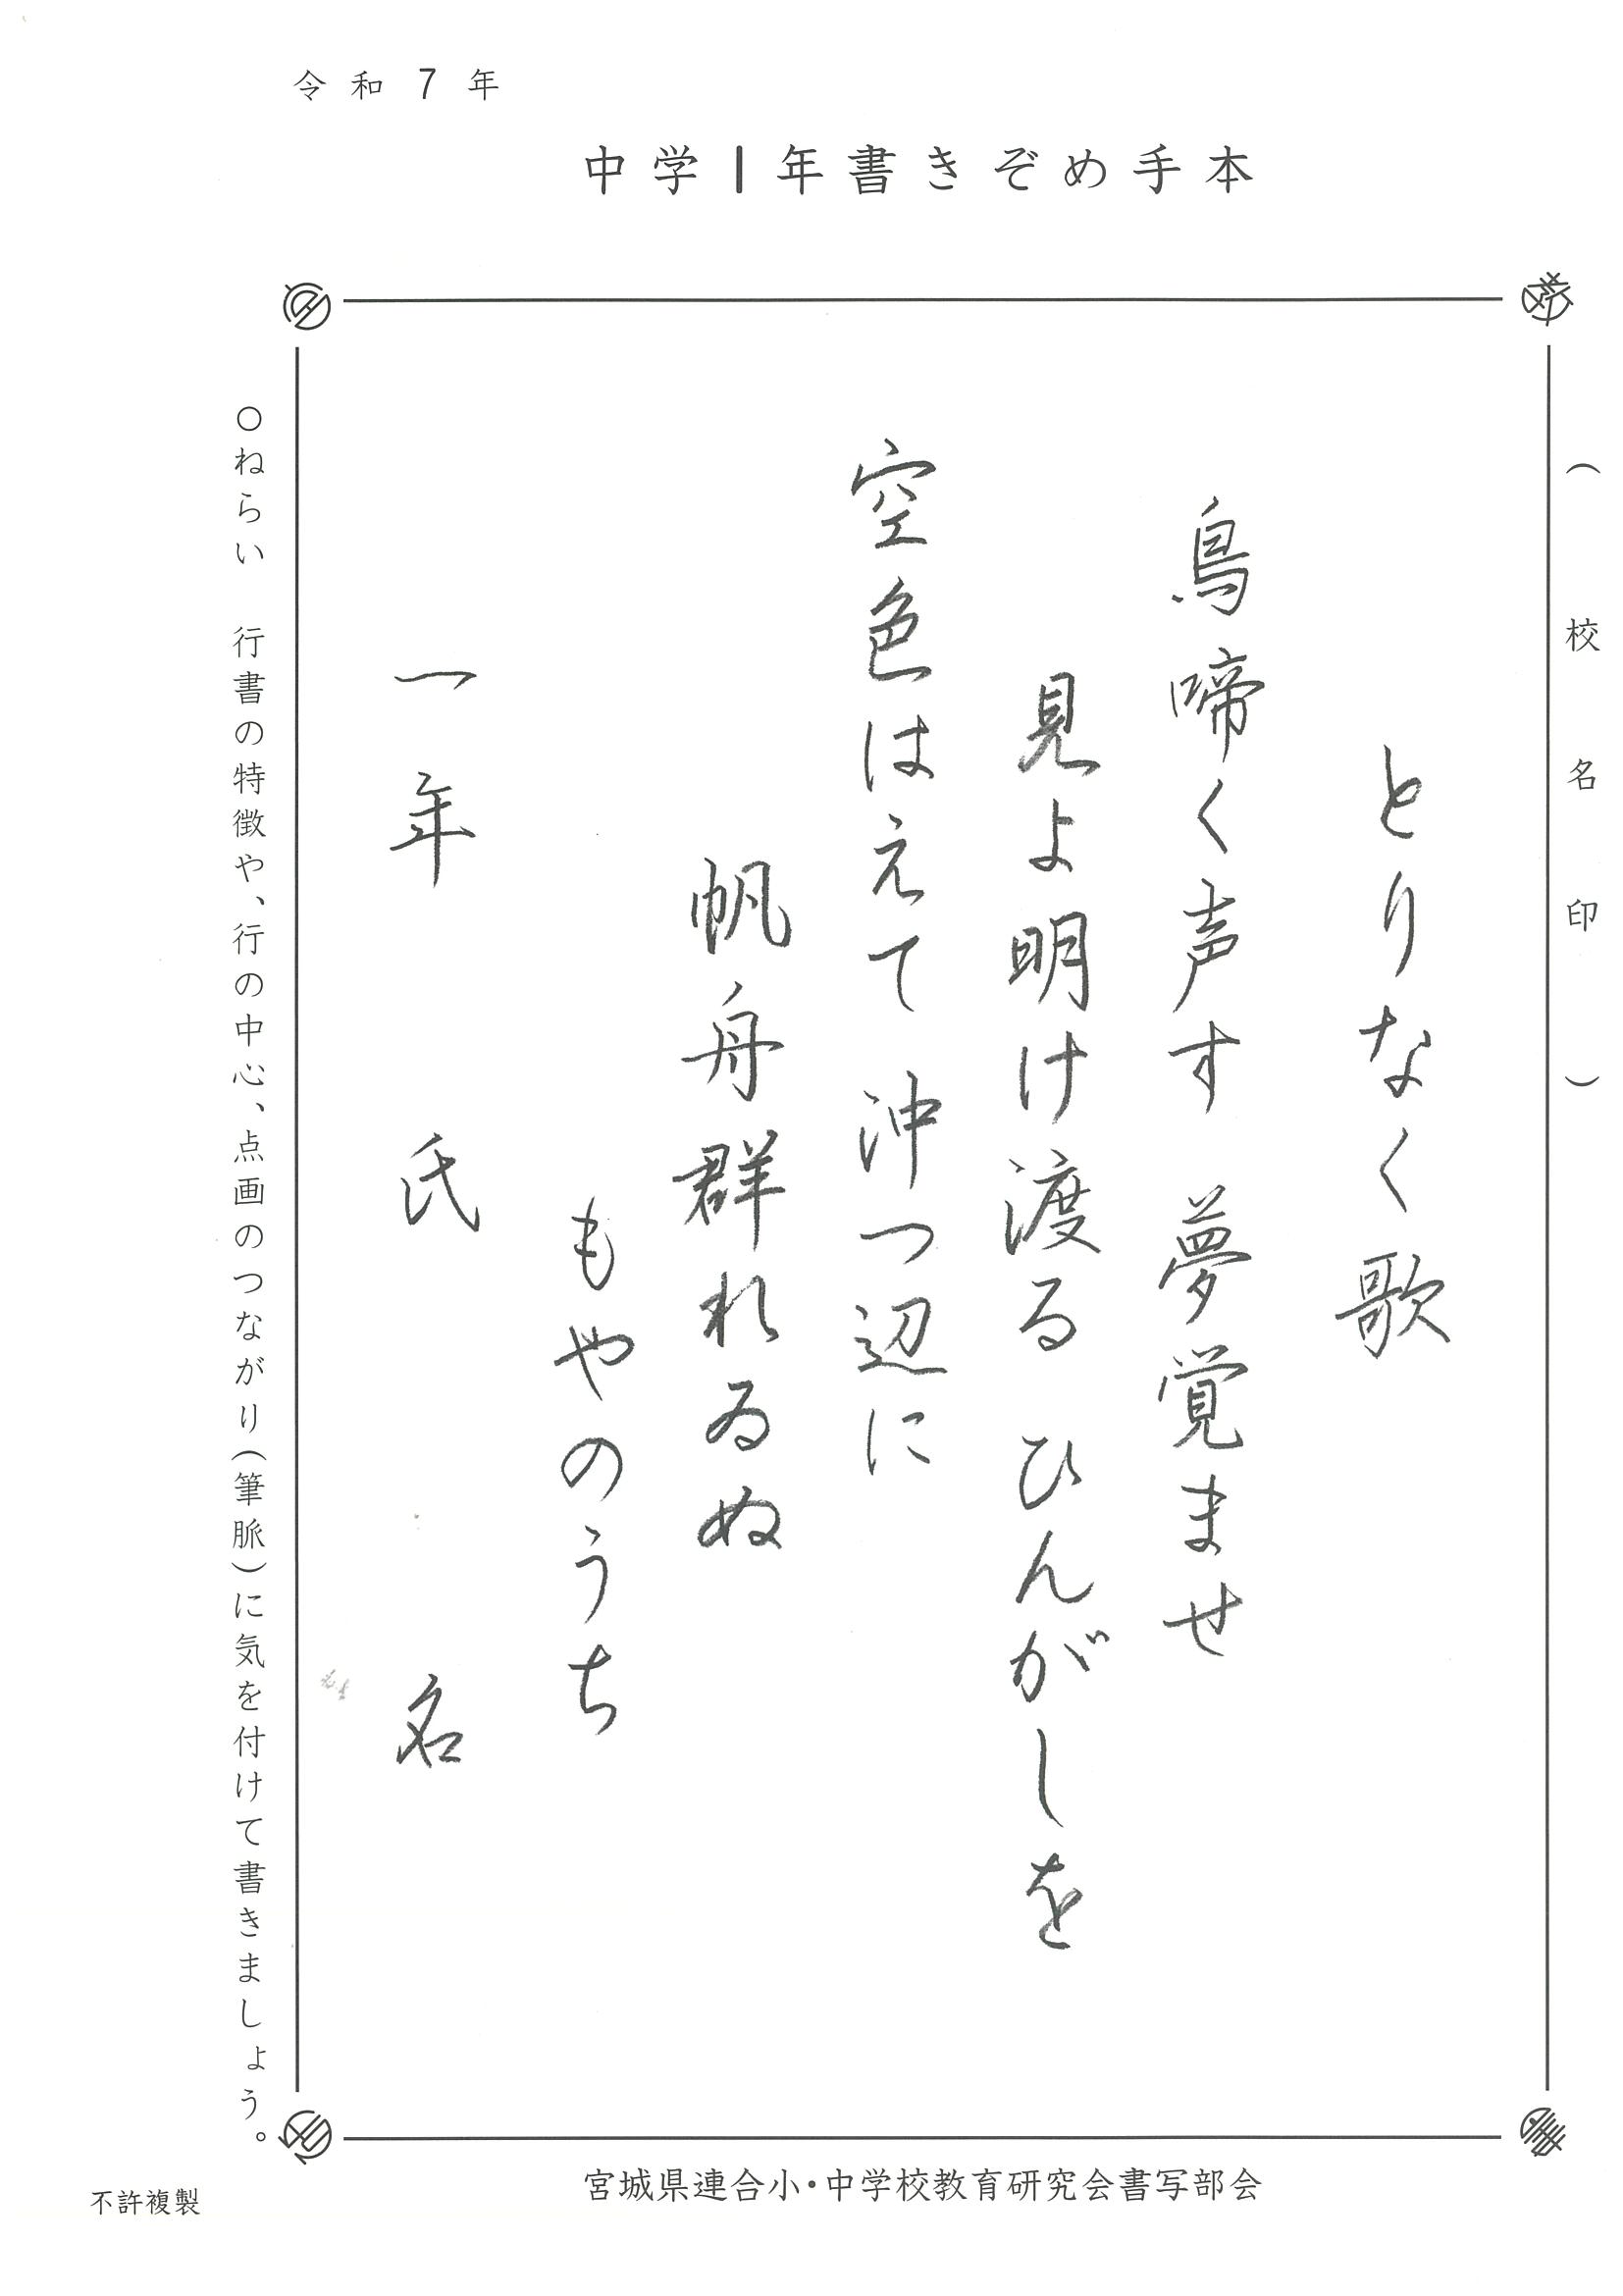 令和7年
中学1年書きぞめ手本
（校名印）
とりなく歌
鳥啼く声す　夢覚ませ
見よ明け渡る　ひんがしを
空色はえて　沖つ辺に
帆舟群れゐぬ
もやのうち
一年　氏　名
○ねらい　行書の特徴や、行の中心、点画のつながり（筆脈）に気を付けて書きましょう。
宮城県連合小・中学校教育研究会書写部会
不許複製